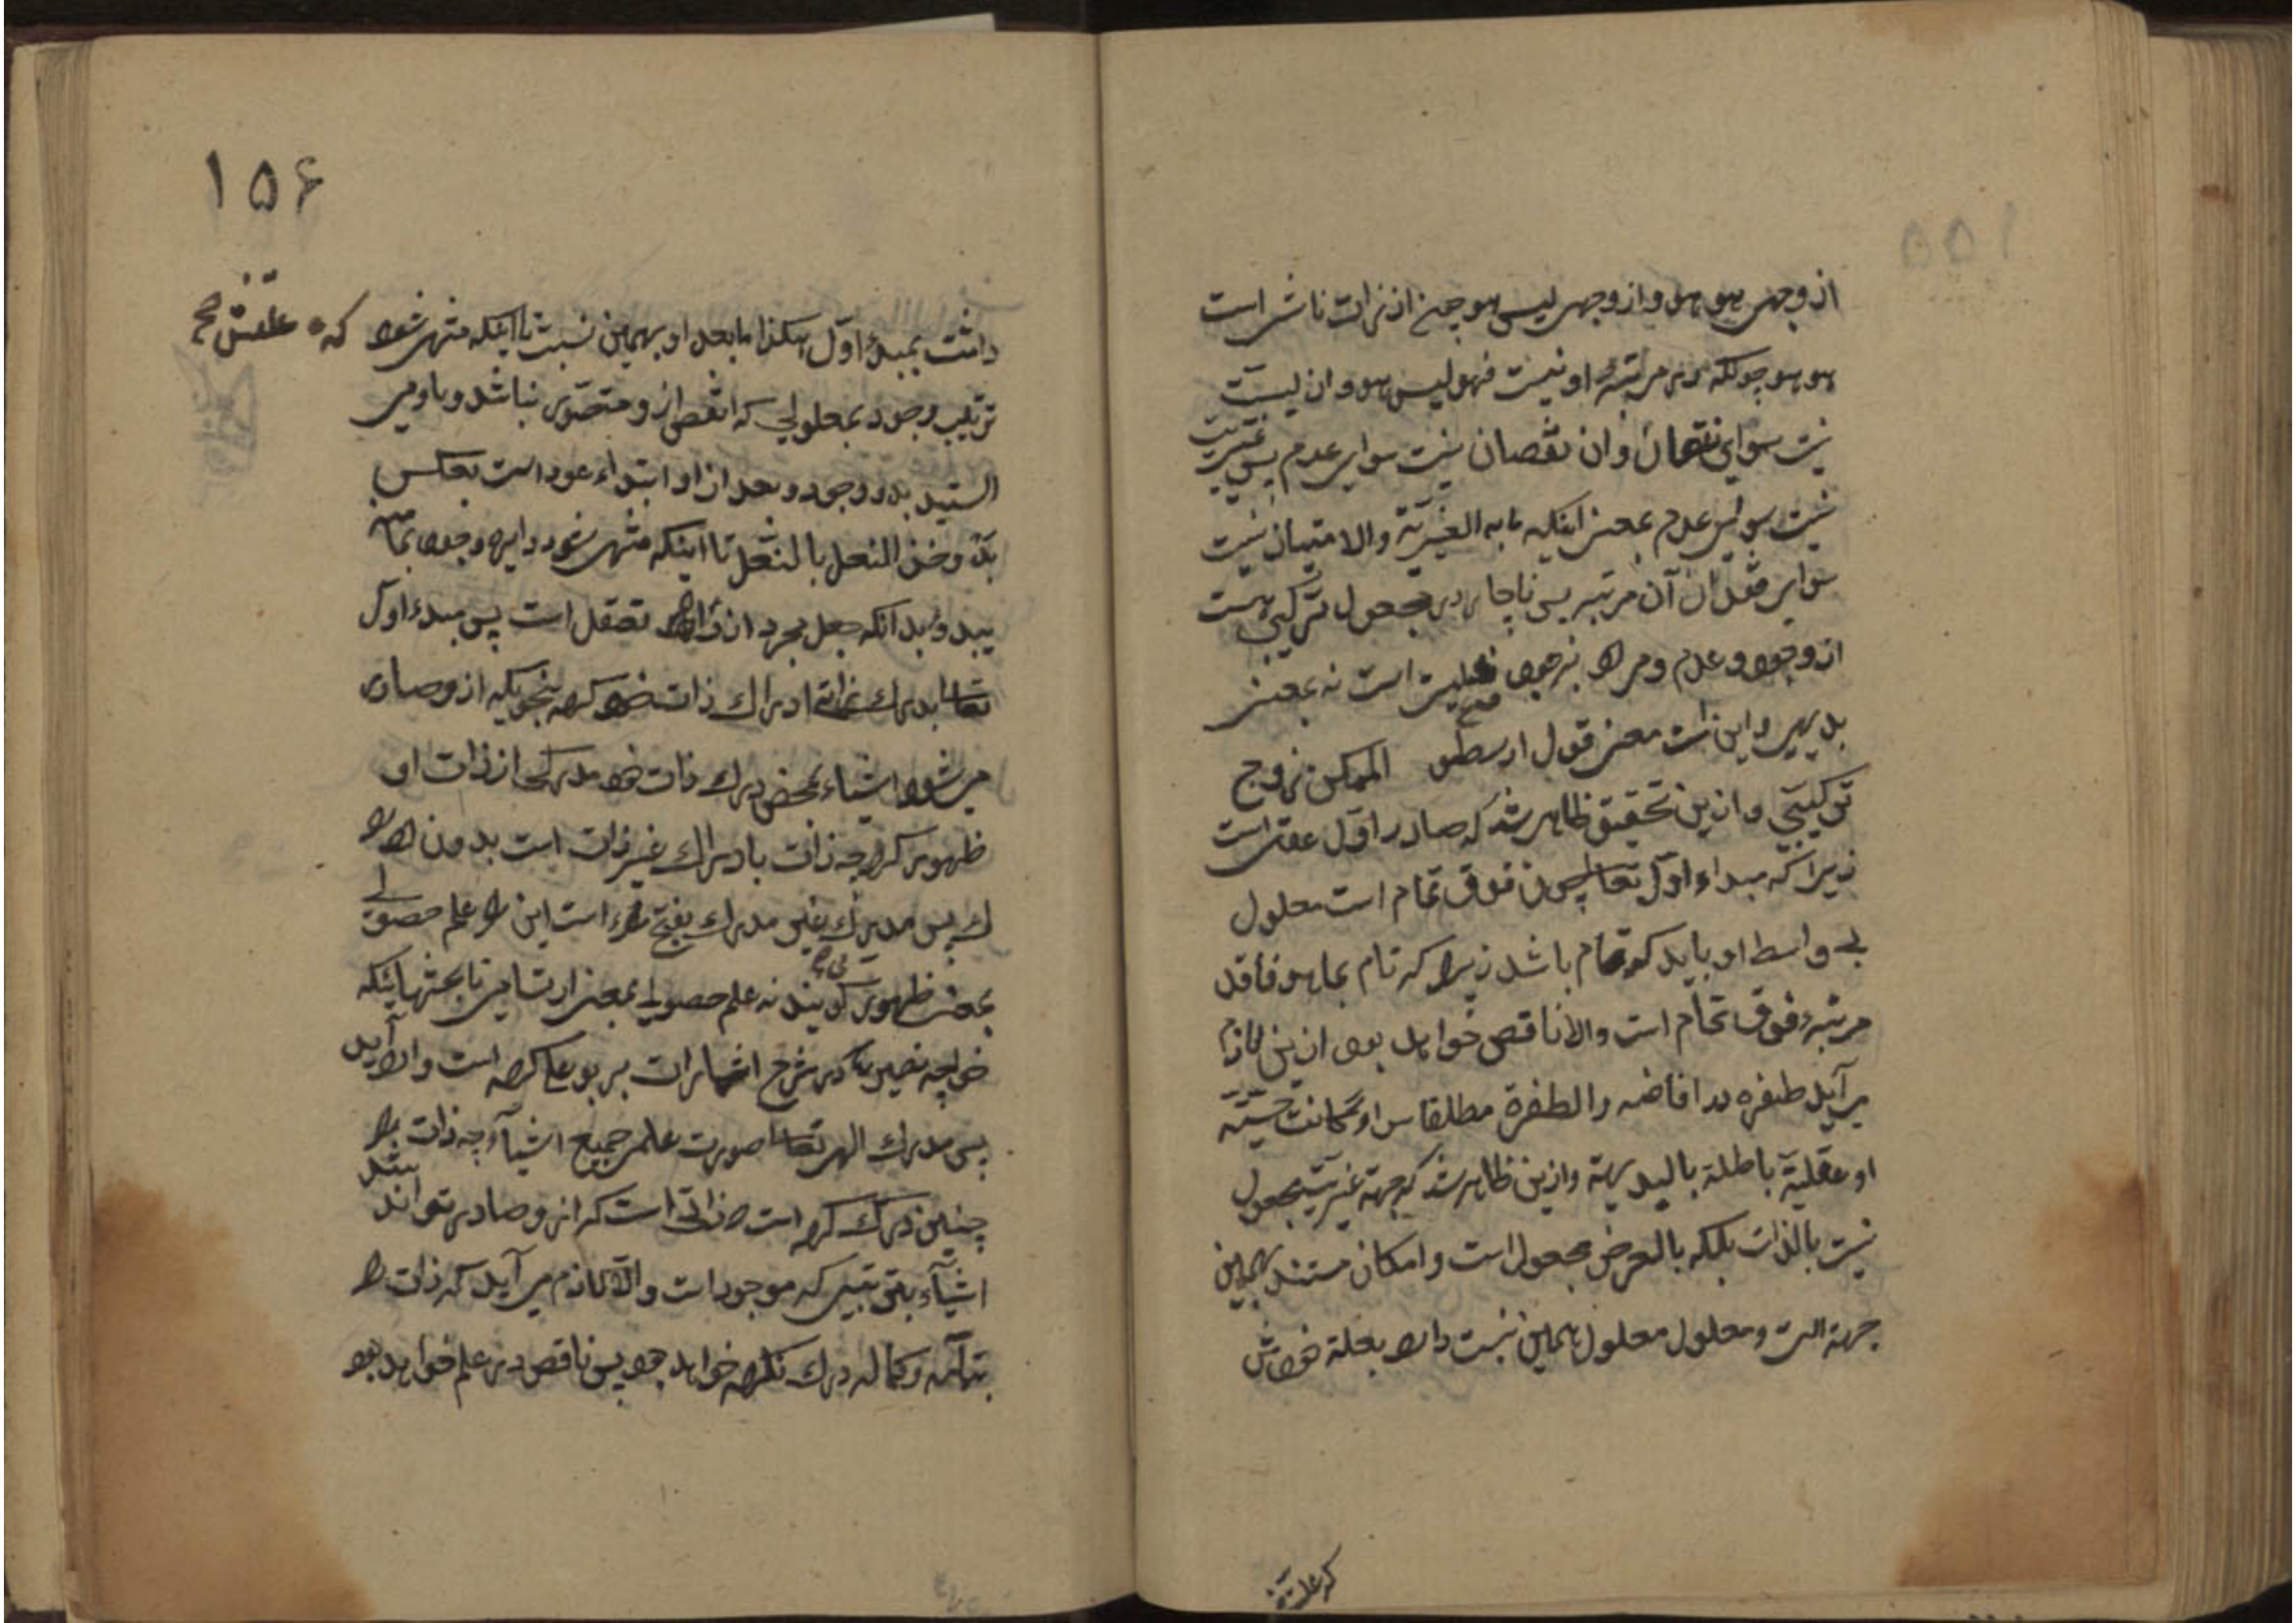 از وجهی هو هو و از وجهی لیس هو چون از ذات ناشی است
هو هو چونکه در مرتبهٔ او نیست فهو لیس هو و ان لیسیّت
نیست سوای نقصان و ان نقصان نیست سوای عدم پس غیریت
نیست سوای عدم بمعنی اینکه ما به الغیریّة والامتیاز نیست
سوای فقدان آن مرتبه پس ناچار در مجعول ترکیبی هست
از وجود و عدم و مراد است نه بمعنی
بدیهی و این است معنی قول ارسطو الممکن زوج
ترکیبی و ازین تحقیق ظاهر شد که صادر اول عقل است
زیرا که مبداء اول تعالی چون فوق تمام است معلول
بی واسط او باید که تمام باشد زیرا که تام بما هو فاقد
مرتبه فوق تمام است والا ناقص خواهد بود ازین لازم
می آید طفره در افاضه والطفرة مطلقا سواء کانت حسّیّة
او عقلیّة باطلة بالبدیهة و ازین ظاهر شد که جهة غیریّت مجعول
نیست بالذات بلکه بالعرض مجعول است و امکان مستند بهمین
جهة است و معلول معلول همین نسبت دارد بعلة خودش
که علتش
۱۵۶
داشت بمبدءِ اوّل هکذا مابعد او بهمین نسبت تا اینکه منتهی شود
که علتش صح
ترتیب وجود بمعلولی که انقص ازو متصوّر نباشد و باو می
ایستد بدو وجود و بعد از او ابتداء عود است بعکس
بدو حذو النعل بالنعل تا اینکه منتهی شود دایره وجود بما
بدء و بدانکه جعل مجرد از تعقل است پس مبدء اول
تعالی بدرک ادراک ذات خود کرده بنحویکه ازو صادر
می شود اشیاء بمحض درک ذات خود مدرکی از ذات او
ظهور کرد چه ذات با دراک غیر ذات است بدون
پس مدرک غیر مدرک بفتح است این را علم حصولی
بمعنی ظهور گویند نه علم حصولی بمعنی ارتسامی تا بحثهائیکه
خواجه نصیر در شرح اشارات بر بوعلی کرده است وارد آید
پس مدرک الهی تعالی صورت علمی جمیع اشیاء چه ذات را
چنین درک کرده است که ازو صادر تواند شد
اشیاء بترتیبی که موجود است والّا لازم می آید که ذات را
بتمامه و کماله درک نکرده خواهد بود پس ناقص در علم خواهد بود